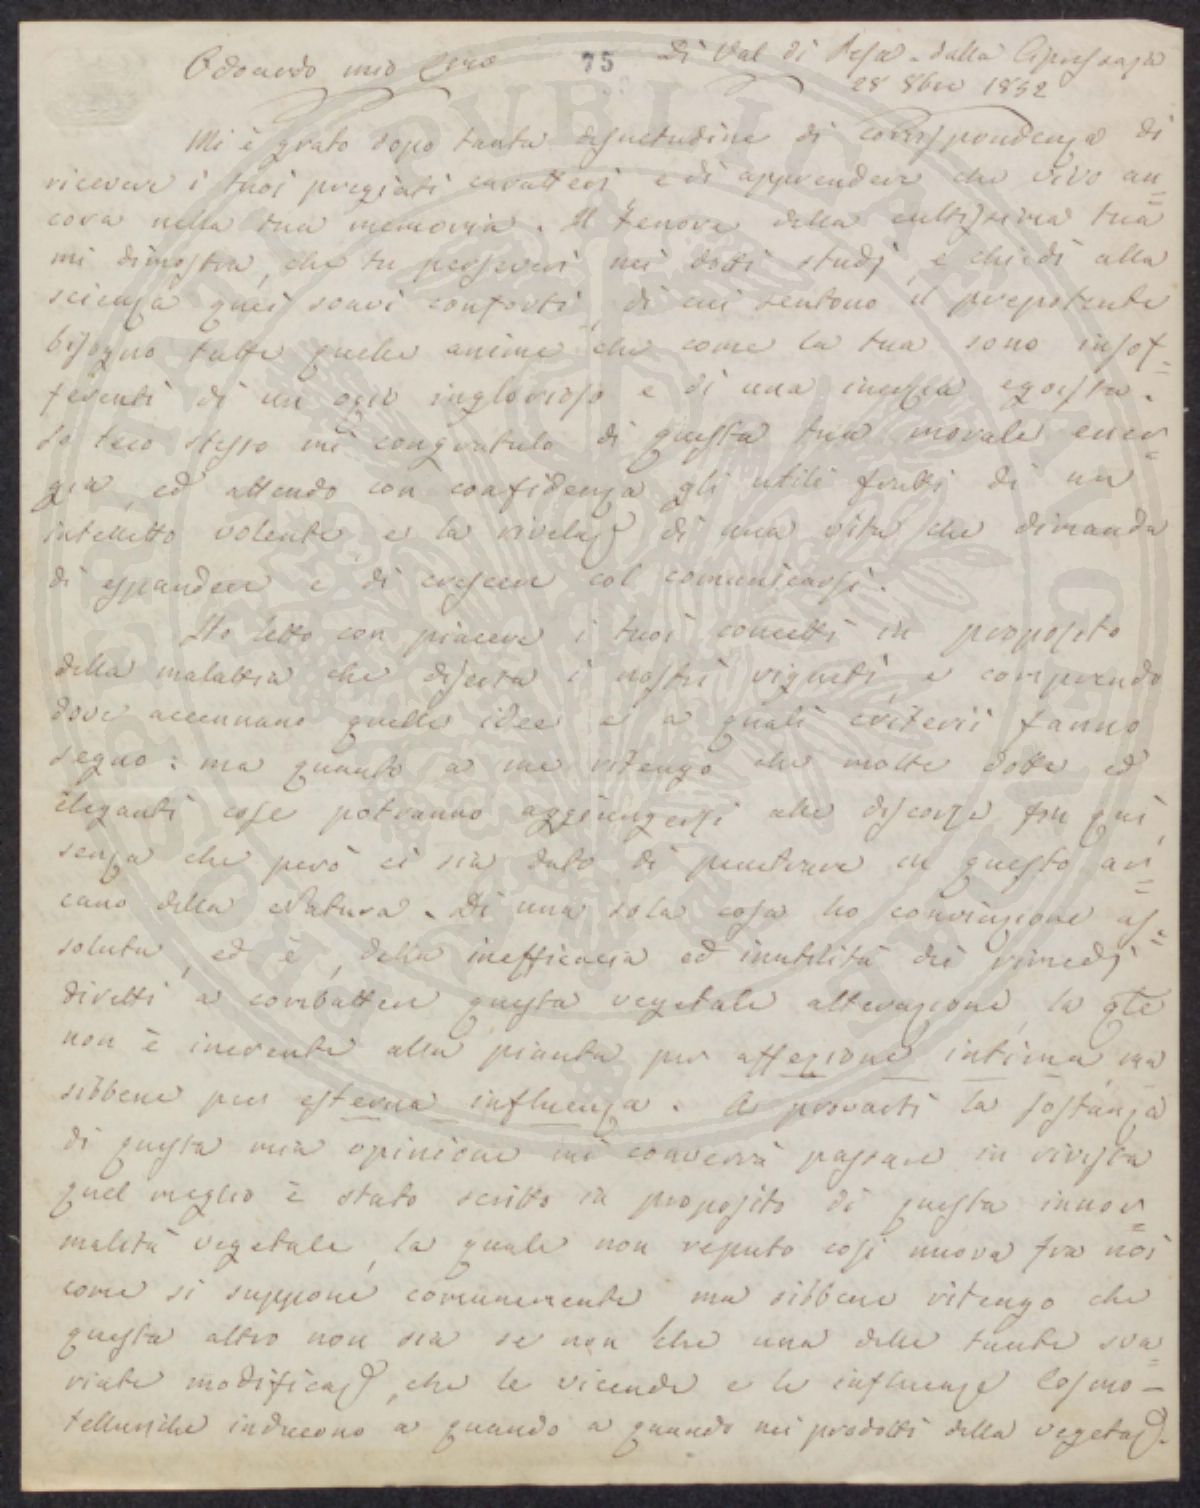 Odoardo mio Caro
75
Di Val di Pesa - dalla Cipressaja
28 8bre 1852
Mi è grato dopo tanta desuetudine di corrispondenza di
ricevere i tuoi pregiati caratteri e di apprendere che vivo an=
cora nella tua memoria. Il tenore della cultissima tua
mi dimostra, che tu perseveri nei dotti studj, e chiedi alla
scienza quei soavi conforti, di cui sentono il prepotente
bisogno tutte quelle anime che come la tua sono insof=
ferenti di un ozio inglorioso e di una inerzia egoista.
Io teco stesso mi congratulo di questa tua morale ener=
gia, ed attendo con confidenza gli utili frutti di un
intelletto volente e la rivelaz di una vita che dimanda
di espandere e di crescere col comunicarsi.
Ho letto con piacere i tuoi concetti in proposito
della malattia che diserta i nostri vigneti, e comprendo
dove accennano quelle idee e a quali criterii fanno
segno: ma quanto a me ritengo che molte dotte ed
eleganti cose potranno aggiungersi alle discorse fin qui,
senza che però ci sia dato di penetrare in questo ar=
cano della Natura. Di una sola cosa ho convinzione as=
soluta, ed è, della inefficacia ed inutilità dei rimedj
diretti a combattere questa vegetale alterazione, la qle
non è inerente alla pianta per affezione intima, ma
sibbene per esterna influenza. A provarti la sostanza
di questa mia opinione mi converrà passare in rivista
quel meglio è stato scritto in proposito di questa innor=
malità vegetale, la quale non reputo così nuova fra noi
come si suppone comunemente ma sibbene ritengo che
questa altro non sia se non che una delle tante sva=
riate modificaz, che le vicende e le influenze cosmo-
telluriche inducono a quando a quando nei prodotti della vegetaz.